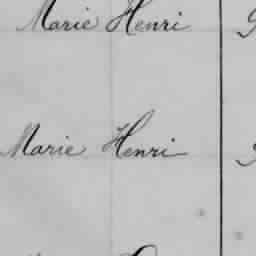 Marie Henri
Marie Henri